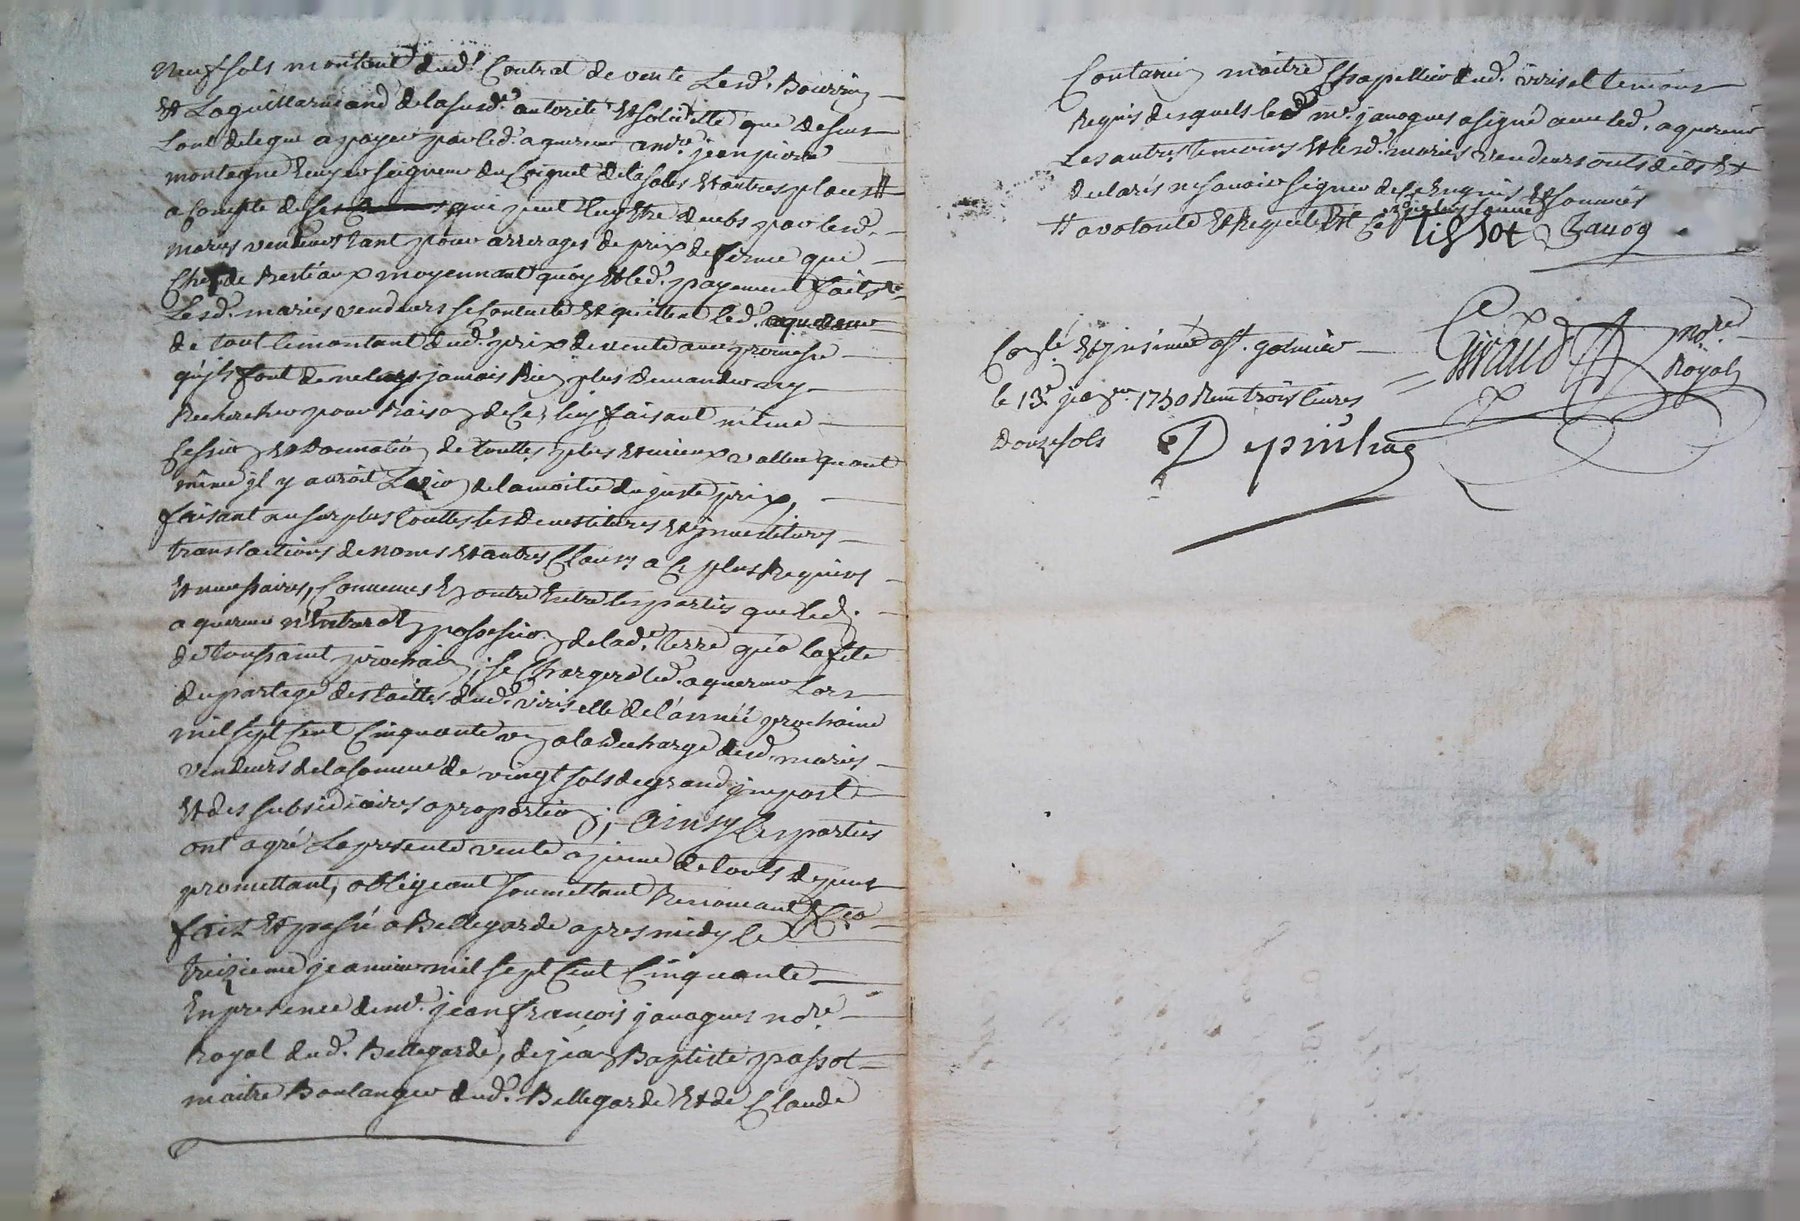 neuf sols montant dud. Contrat de vente Lesd. Bourrin
Et Laguillermand de lasusd. autorité Et solidité que dessus
Lont delegué a payer par led. aquereur andré jean pierre
montagne Ecuyer seigneur du Poignet delasalles Et autres places #
a Compte de ses que peut luy Etre deubs par lesd.
mariés vendeurs tant pour arrerages de prix de ferme que
Chef de Bestiaux moyennant quoy Et led. payement fait
Lesd. mariés vendeurs se Contente Et quittent led. aquereur
de tout le montant dud. prix de vente avec promesse
qu'ils font de ne luy jamais Rien plus demander ny
Rechercher pour Raison de Ce, luy faisant même
Cession Et Donnation de touttes plus Et mieux valleur quant
même jl y auroit Lezion de la moitié du juste prix,
faisant au surplus touttes les devestitures Et jnvestitures
translactions de noms Et autres Clauses a Ce plus Requises
Et necessaires, Convenus En outre Entre les parties que led.
aquereur n'Entrera En possession de lad. terre qu'a la fête
de toussaint prochain; se Chargera led. aquereur Lors
du partage des tailles dud. viriselle de l'année prochaine
mil sept Cent Cinquante un a la decharge desd. mariés
vendeurs de la somme de vingt sols de grand jmpost
Et des subsidiaires a proportion; Ainsy les parties
ont agréé La presente vente a peine de touts depens
promettant, obligeant soumettant Renonceant &a
fait Et passé a Bellegarde apres midy le
treizieme janvier mil sept Cent Cinquante
En presence de me. jean françois janoques nore.
Royal dud. Bellegarde, de jean Baptiste passot
maitre Boulanger dud. Bellegarde Et de Claude
Contamin maitre Chapellier dud. viriselle temoins
Requis desquels led. me. janoques a signé avec led. aquereur
Les autres temoins Et lesd. mariés vendeurs ont dits Et
declarés ne sauoir signer de Ce Enquis Et sommés
# a volonté Et Requete Et
tissot Janoq
Conlé Et jnsinué a st. galmier
le 13e. janver 1750 Reçu trois livres
douze sols Depinhac
Giraud nore.
Royal